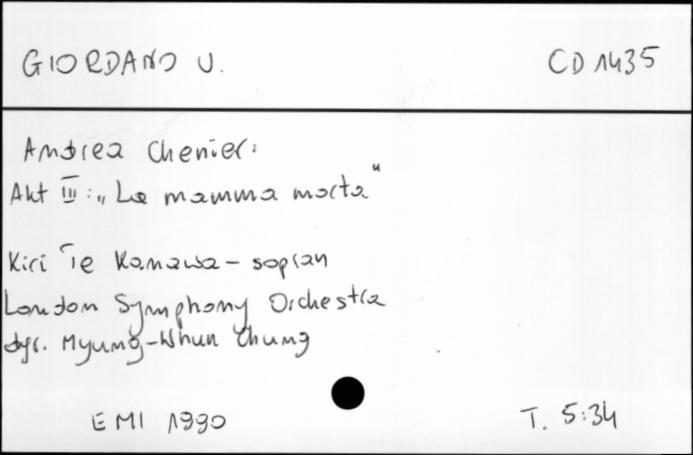 GIORDANO U.
CD 1435
Andrea Chenier:
Akt III: „La mamma morta"
Kiri Te Kanawa - sopran
London Symphony Orchestra
dyr. Myung-Whun Chung
EMI 1990
T. 5:34